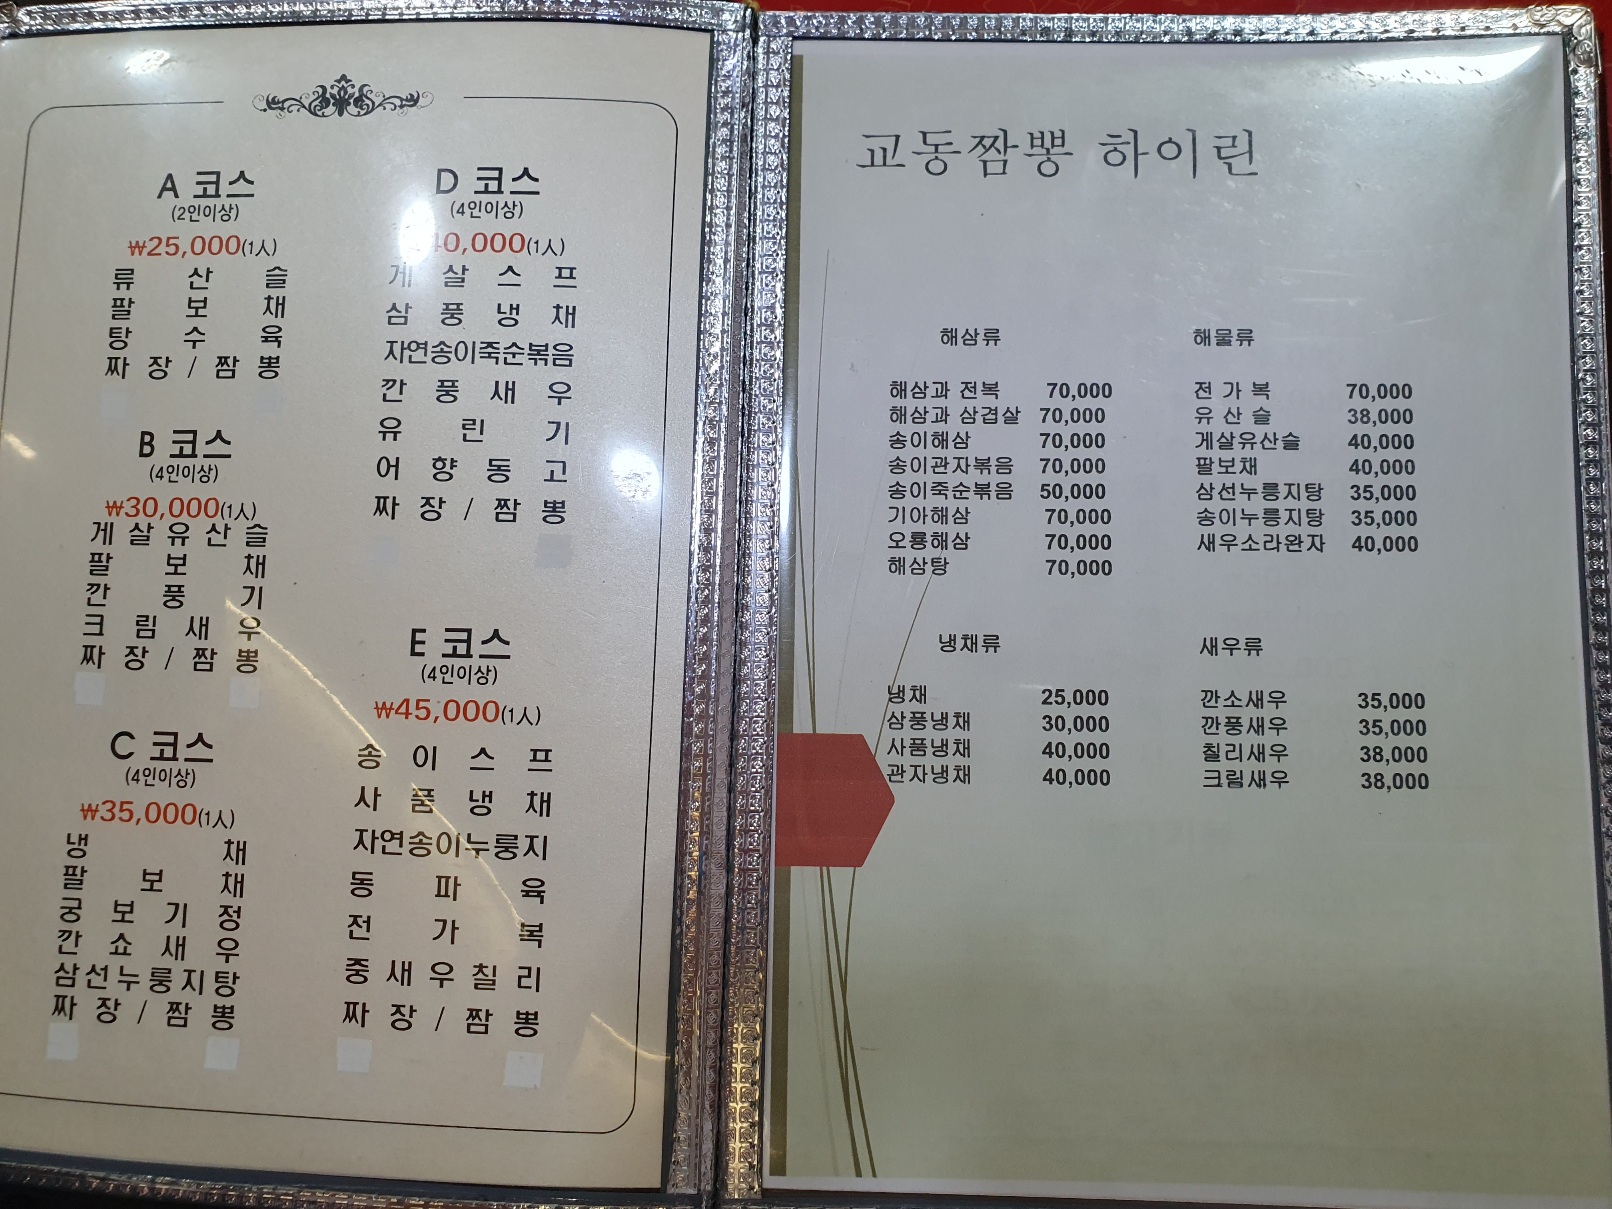 A 코스
(2인이상)
₩25,000(1人)
류 산 슬
팔 보 채
탕 수 육
짜 장 / 짬 뽕
B 코스
(4인이상)
₩30,000(1人)
게 살 유 산 슬
팔 보 채
깐 풍 기
크 림 새 우
짜 장 / 짬 뽕
C 코스
(4인이상)
₩35,000(1人)
냉 채
팔 보 채
궁 보 기 정
깐 쇼 새 우
삼선누룽지탕
짜 장 / 짬 뽕
D 코스
(4인이상)
40,000(1人)
게 살 스 프
삼 풍 냉 채
자연송이죽순볶음
깐 풍 새 우
유 린 기
어 향 동 고
짜 장 / 짬 뽕
E 코스
(4인이상)
₩45,000(1人)
송 이 스 프
사 품 냉 채
자연송이누룽지
동 파 육
전 가 복
중 새 우 칠 리
짜 장 / 짬 뽕
교동짬뽕 하이린
해삼류
해삼과 전복 70,000
해삼과 삼겹살 70,000
송이해삼 70,000
송이관자볶음 70,000
송이죽순볶음 50,000
기아해삼 70,000
오룡해삼 70,000
해삼탕 70,000
해물류
전 가 복 70,000
유 산 슬 38,000
게살유산슬 40,000
팔보채 40,000
삼선누룽지탕 35,000
송이누룽지탕 35,000
새우소라완자 40,000
냉채류
냉채 25,000
삼풍냉채 30,000
사품냉채 40,000
관자냉채 40,000
새우류
깐소새우 35,000
깐풍새우 35,000
칠리새우 38,000
크림새우 38,000